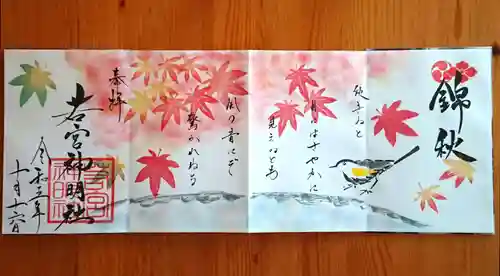 錦秋
秋来ぬと
目にはさやかに
見えねども
風の音にぞ
驚かれぬる
奉拝
若宮神明社
令和
十月十六日